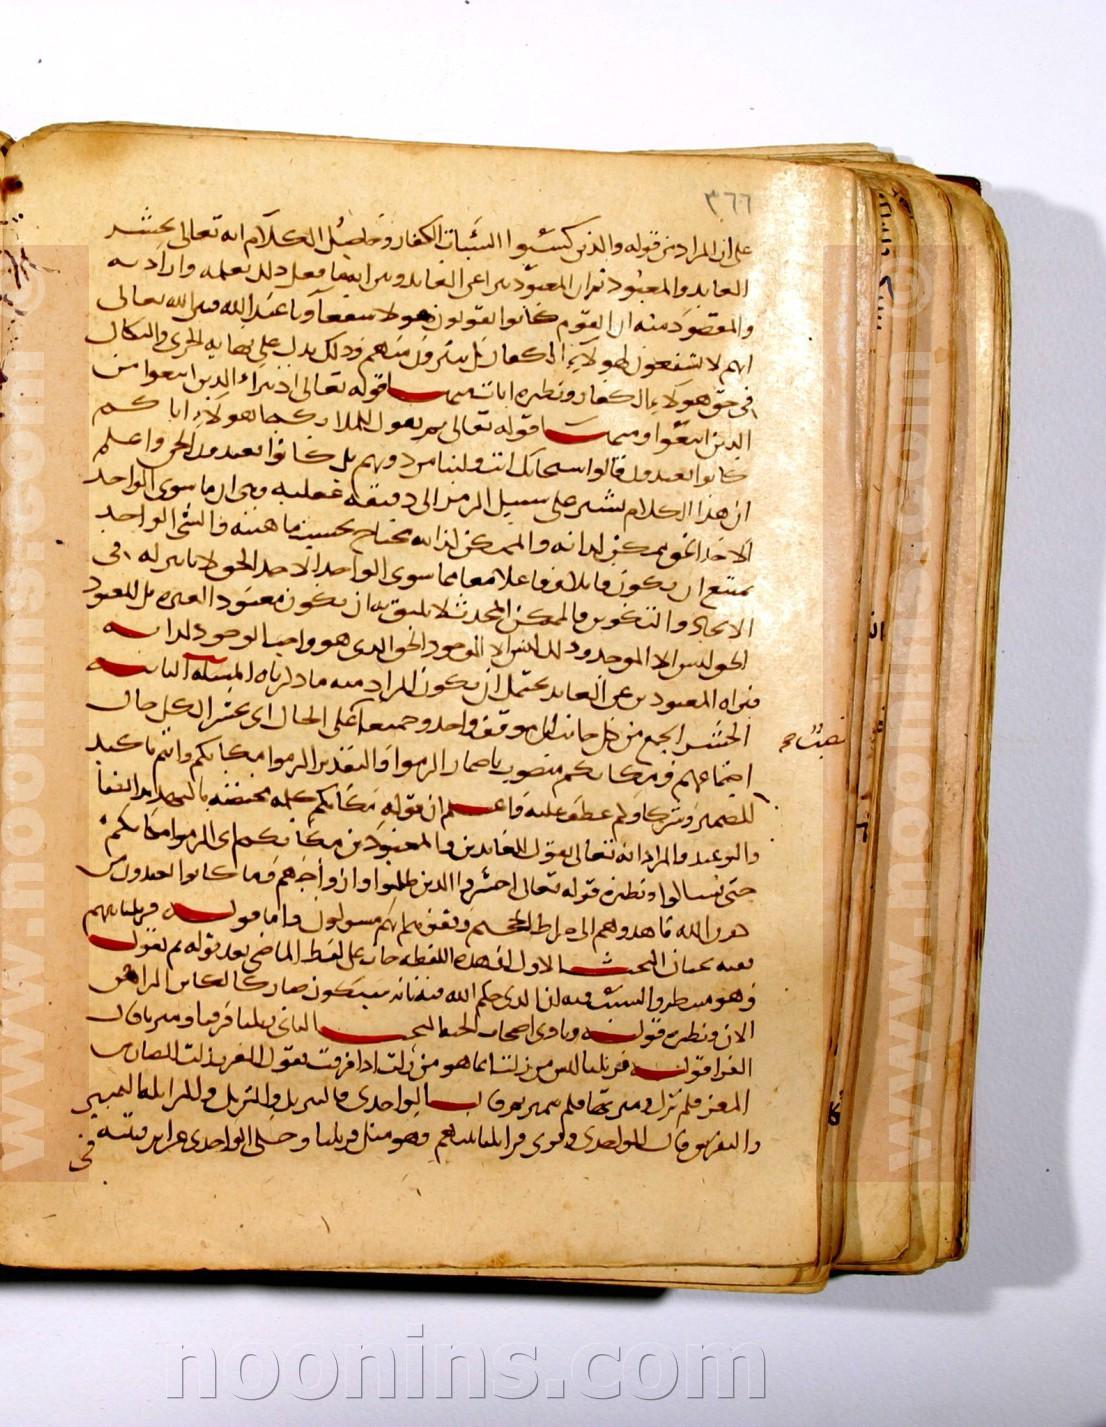 ٣٦٦
على ان المراد من قوله والذين كسبوا السيئات الكفار وحاصل الكلام انه تعالى يحشر
العابد والمعبود ثم ان المعبود يتبرا عن العابد وتبين انه ما فعل ذلك بعلمه وارادته
والمقصود منه ان القوم كانوا يقولون هولا شفعاونا عند الله فبين الله تعالى
انهم لا يشفعون لهولاء الكفار بل يتبرؤن منهم وذلك يدل على نهاية الخزي والنكال
في حق هولاء الكفار ونظيره ايات منها قوله تعالى اذ تبرا الذين اتبعوا من
الذين اتبعوا ومنها قوله تعالى ثم يقول للملائكة اهولاء اياكم
كانوا يعبدون قالوا سبحانك انت ولينا من دونهم بل كانوا يعبدون الجن واعلم
ان هذا الكلام يشير على سبيل الرمز الى دقيقة عقلية وهي ان ما سوى الواحد
الاحد الحق ممكن لذاته والممكن لذاته محتاج بحسب ماهيته والشي الواحد
يمتنع ان يكون قابلا وفاعلا معا فما سوى الواحد الاحد الحق لا تاثير له في
الايجاد والتكوين فالممكن المحدث لا يليق به ان يكون معبودا لغيره بل المعبود
الحق ليس الا الموجد وذلك ليس الا الموجود الحق الذي هو واجب الوجود لذاته
فبراه المعبودين عن العابد يحتمل ان يكون المراد منه ما ذكرناه المسئلة الثانية
الحشر الجمع من كل جانب الى موقف واحد وجميعا على الحال اي نحشر الكل حال
نصب صح
اجتماعهم ومكانكم منصوب باضمار الزموا والتقدير الزموا مكانكم وانتم تاكيد
للضمير وشركاوكم عطف عليه واعلم ان قوله مكانكم كلمة مختصة بالتهديد
والوعيد والمراد انه تعالى يقول للعابدين والمعبودين مكانكم اي الزموا مكانكم
حتى تسالوا ونظيره قوله تعالى احشروا الذين ظلموا وازواجهم وما كانوا يعبدون من
دون الله فاهدوهم الى صراط الجحيم وقفوهم انهم مسولون واما قوله فزيلنا بينهم
ففيه بحثان البحث الاول ان هذه اللفظة جات على لفظ الماضي بعد قوله ثم نقول
وهو منتظر والسبب فيه ان الذي حكم الله فيه بانه سيكون صار كالكاين الراهن
الان ونظيره قوله ونادى اصحاب الجنة البحث الثاني زيلنا فرقنا وميزنا قال
الفرا قوله فزيلنا ليس من ازلت انما هو من زلت اذا فرقت يقول العرب زلت الضان من
المعز فلم تزل وميزتها فلم تتميز ثم قال الواحدي فالتزييل والتزيل والمزايلة التمييز
والتفرق قال الواحدي وقرى فزايلنا بينهم وهو مثل فزيلنا وحكى الواحدي عن ابن قتيبة
في